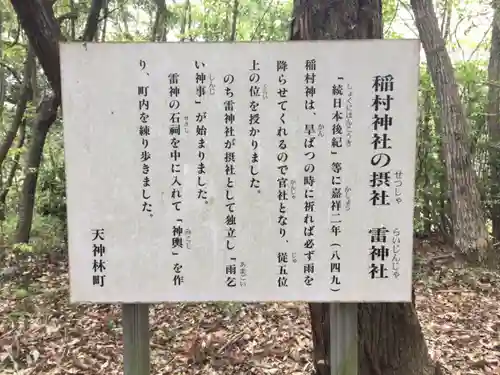 稲村神社の摂社　雷神社
『続日本後紀』等に嘉祥二年（八四九）
稲村神は、旱ばつの時に祈れば必ず雨を
降らせてくれるので官社となり、従五位
上の位を授かりました。
のち雷神社が摂社として独立し『雨乞
い神事』が始まりました。
雷神の石祠を中に入れて『神輿』を作
り、町内を練り歩きました。
天神林町